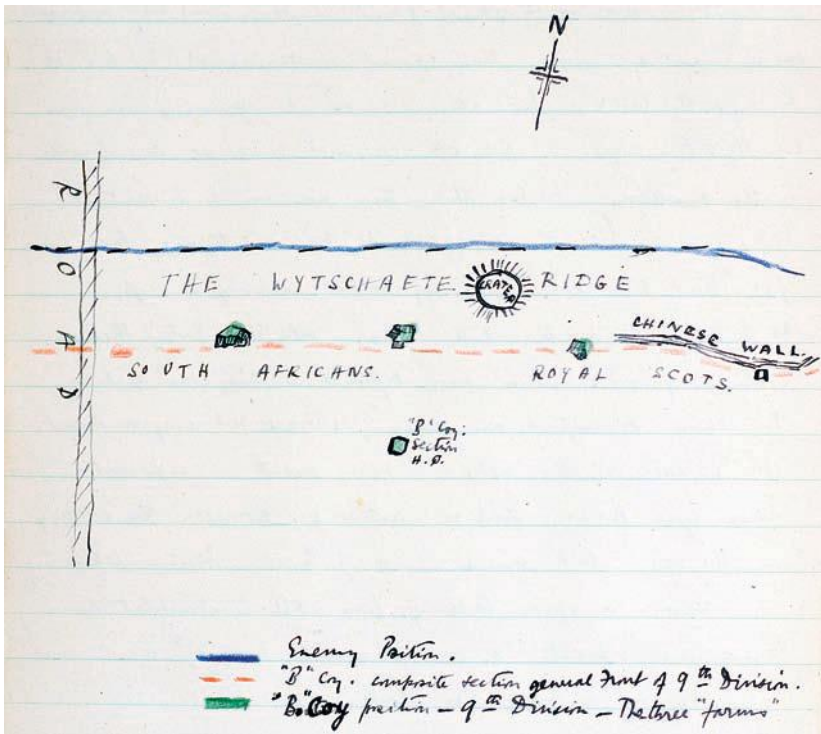 N
ROAD
THE WYTSCHAETE RIDGE
CRATER
CHINESE WALL.
SOUTH AFRICANS.
ROYAL SCOTS.
"B" Coy:
Section
H.Q.
Enemy Position.
"B" Coy. composite section general Front of 9th Division.
"B." Coy position – 9th Division – The three "farms"